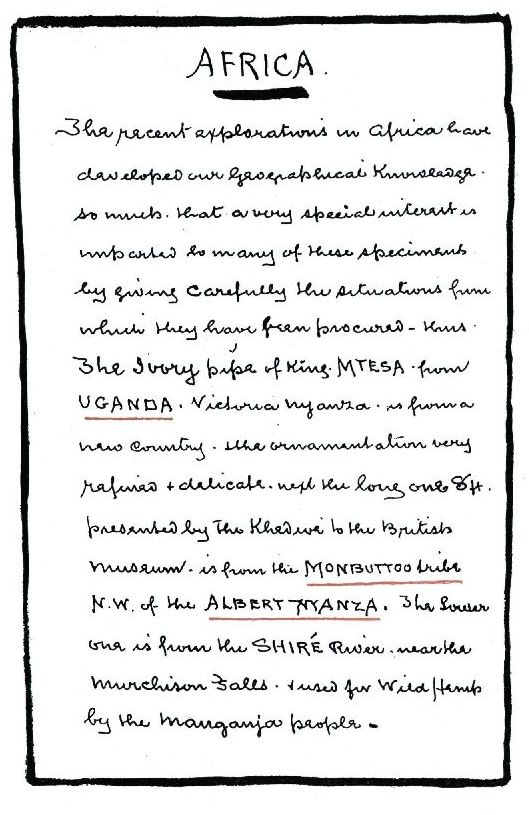 AFRICA.
The recent explorations in Africa have
developed our Geographical Knowledge.
so much. that a very special interest is
imparted to many of these specimens
by giving carefully the situations from
which they have been procured - thus.
The Ivory pipe of King. MTESA. from
UGANDA. Victoria Nyanza. is from a
new Country. the ornamentation very
refined + delicate. next the long one 8 ft.
presented by The Khedive to the British
Museum. is from the MONBUTTOO tribe
N.W. of the ALBERT NYANZA. The Lower
one is from the SHIRÉ River. near the
Murchison Falls. + used for Wild Hemp
by the Manganja people -